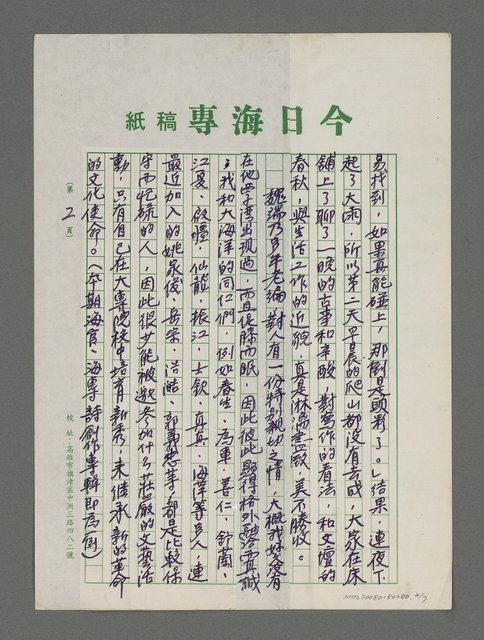 今日海專 稿紙
易找到,如果真能碰上,那倒是頭彩了。」結果,連夜下
起了大雨,所以第二天早晨的爬山都沒有去成,大家在床
舖上了聊了一晚的古事和辛酸,對寫作的看法,和文壇的
春秋,與生活工作的近貌,真是淋漓盡致,美不勝收。
魏端乃多年老編,對人有一份特別親切之情,大概我好沒有
在他家灣出現過,而且促膝而眠,因此彼此顯得格外融洽真誠
,我和大海洋的同仁們,例如春生、為軍、善仁、舒蘭、
江夏、啟疆、仙龍、振江、士欽、真真、海洋等多人,連
最近加入的姚家俊、岳宗、浩澔、郭義忠等,都是比較保
守而忙碌的人,因此很少能被邀參加什么莊嚴的文藝活
動,只有自己在大專院校中培育新秀,来繼承新的革命
的文化使命。(本期海官、海專詩創作專輯即為例
(第 2 頁)
校址:高雄市旗津區中洲三路四八二號
NMTL20080180280, 2/7